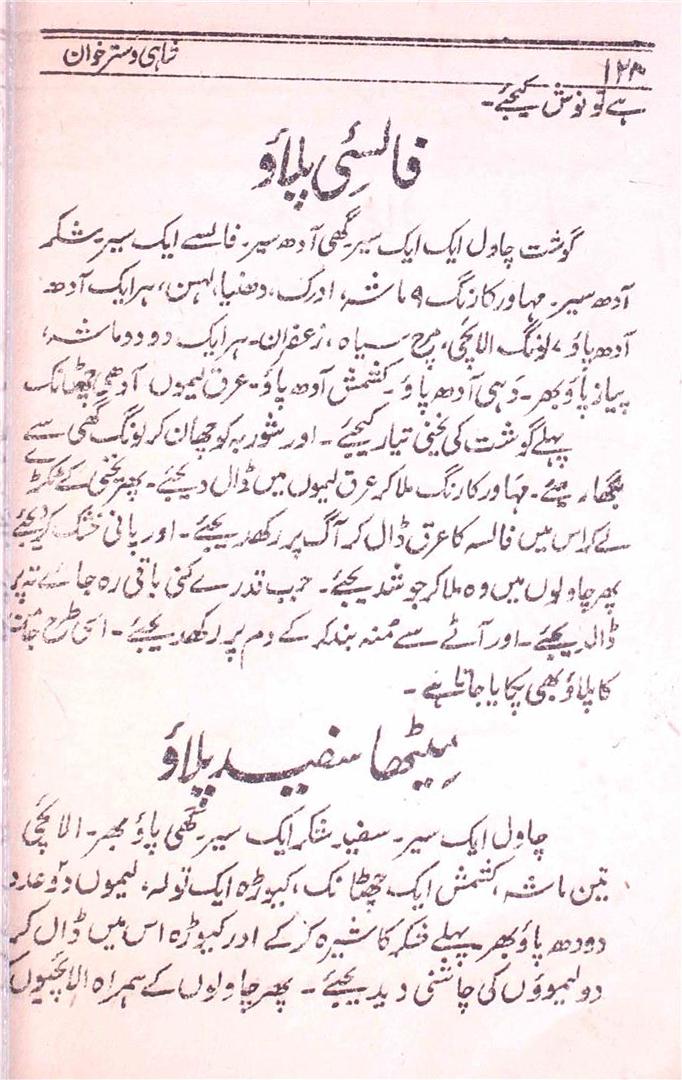 شاہی دسترخوان
۱۲۳
ہے تو نوش کیجئے۔
فالسئی پلاؤ
گوشت چاول ایک ایک سیر۔ گھی آدھ سیر۔ فالسے ایک سیر۔ شکر
آدھ سیر۔ مہاور کا رنگ ۹ ماشہ، ادرک، دھنیا، لہسن، ہر ایک آدھ
آدھ پاؤ، لونگ الائچی، مرچ سیاہ، زعفران۔ ہر ایک دو دو ماشہ،
پیاز پاؤ بھر۔ دہی آدھ پاؤ۔ کشمش آدھ پاؤ۔ عرق لیموں آدھی چھٹانک
پہلے گوشت کی یخنی تیار کیجئے۔ اور شوربہ کو چھان کر لونگ گھی سے
بگھاریئے۔ مہاور کا رنگ ملا کر عرق لیموں میں ڈال دیجئے۔ پھر یخنی کے ٹکڑے
لے کر اس میں فالسہ کا عرق ڈال کر آگ پر رکھ دیجئے۔ اور پانی خشک کیجئے
پھر چاولوں میں وہ ملا کر جوش دیجئے۔ جب قدرے کنی باقی رہ جائے تہ پر
ڈال دیجئے۔ اور آٹے سے منہ بند کر کے دم پر رکھ دیجئے۔ اسی طرح جامن
کا پلاؤ بھی پکایا جاتا ہے۔
میٹھا سفید پلاؤ
چاول ایک سیر۔ سفید شکر ایک سیر۔ گھی پاؤ بھر۔ الائچی
تین ماشہ، کشمش ایک چھٹانک، کیوڑہ ایک تولہ، لیموں دو عدد
دودھ پاؤ بھر۔ پہلے شکر کا شیرہ کر کے اور کیوڑہ اس میں ڈال کر
دو لیموؤں کی چاشنی دیدیجئے۔ پھر چاولوں کے ہمراہ الائچیوں